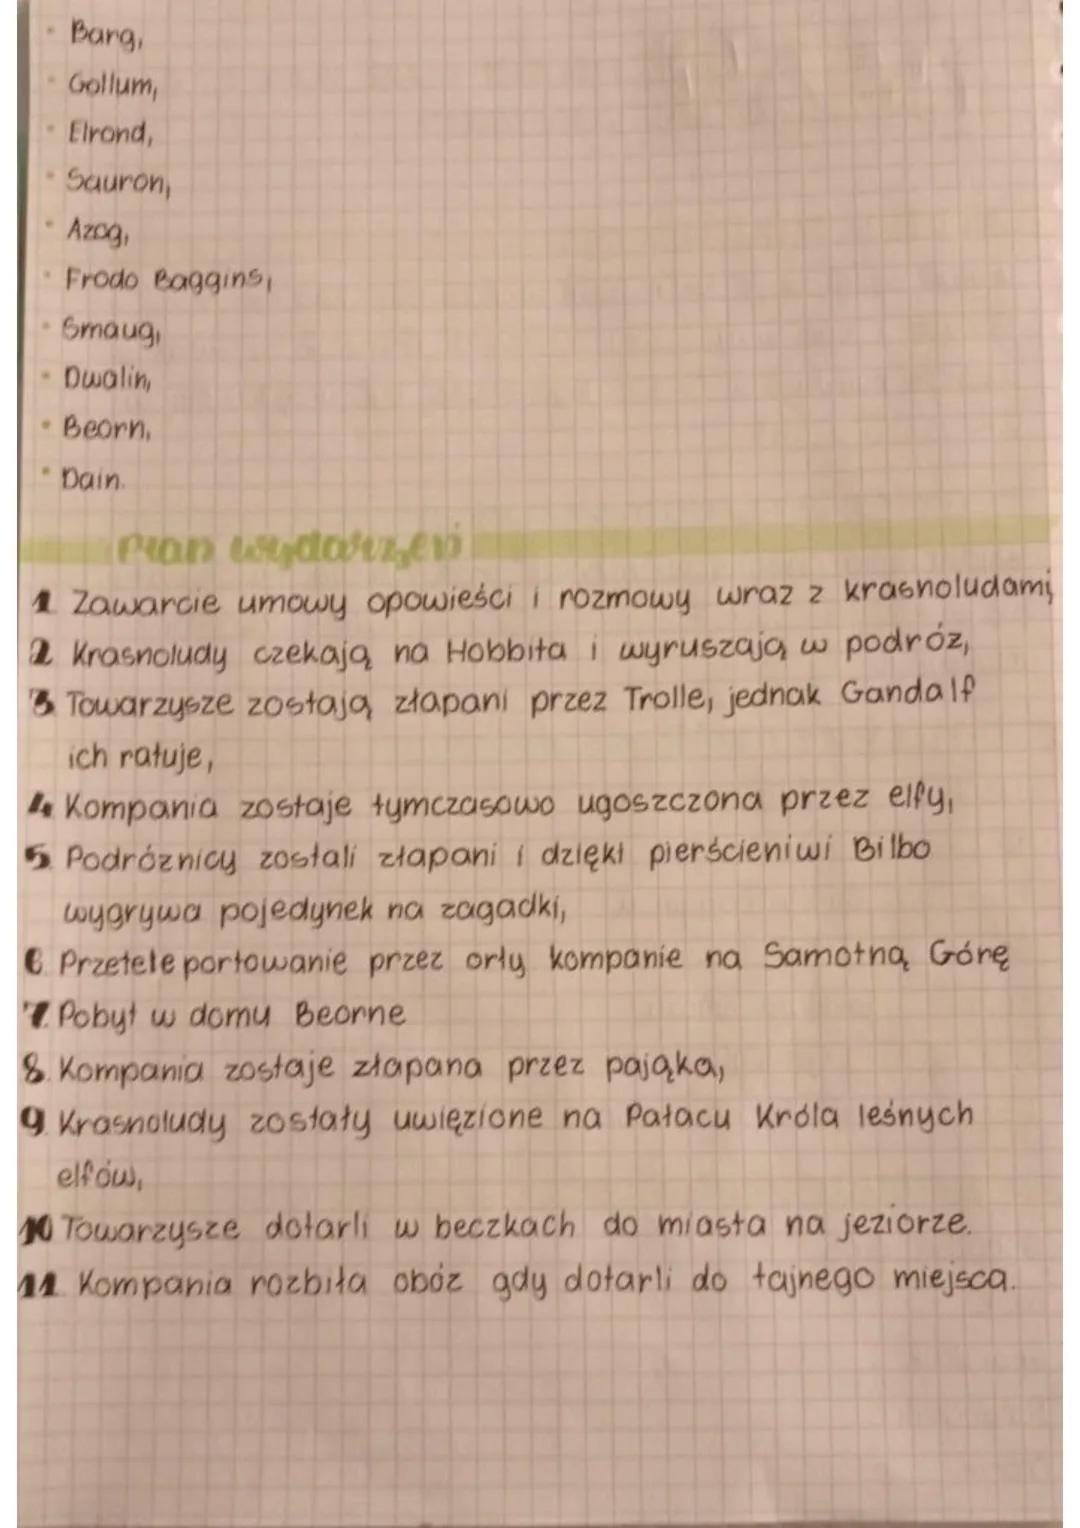 • Barg,
• Gollum,
• Elrond,
• Sauron,
• Azog,
• Frodo Baggins,
• Smaug,
• Dwalin,
• Beorn,
• Dain.
Plan wydarzeń
1. Zawarcie umowy opowieści i rozmowy wraz z krasnoludami,
2. Krasnoludy czekają na Hobbita i wyruszają w podróż,
3. Towarzysze zostają złapani przez Trolle, jednak Gandalf
ich ratuje,
4. Kompania zostaje tymczasowo ugoszczona przez elfy,
5. Podróżnicy zostali złapani i dzięki pierścieniwi Bilbo
wygrywa pojedynek na zagadki,
6. Przeteleportowanie przez orły kompanie na Samotną Górę
7. Pobyt w domu Beorne
8. Kompania zostaje złapana przez pająka,
9. Krasnoludy zostały uwięzione na Pałacu Króla leśnych
elfów,
10 Towarzysze dotarli w beczkach do miasta na jeziorze.
11. Kompania rozbiła obóz gdy dotarli do tajnego miejsca.